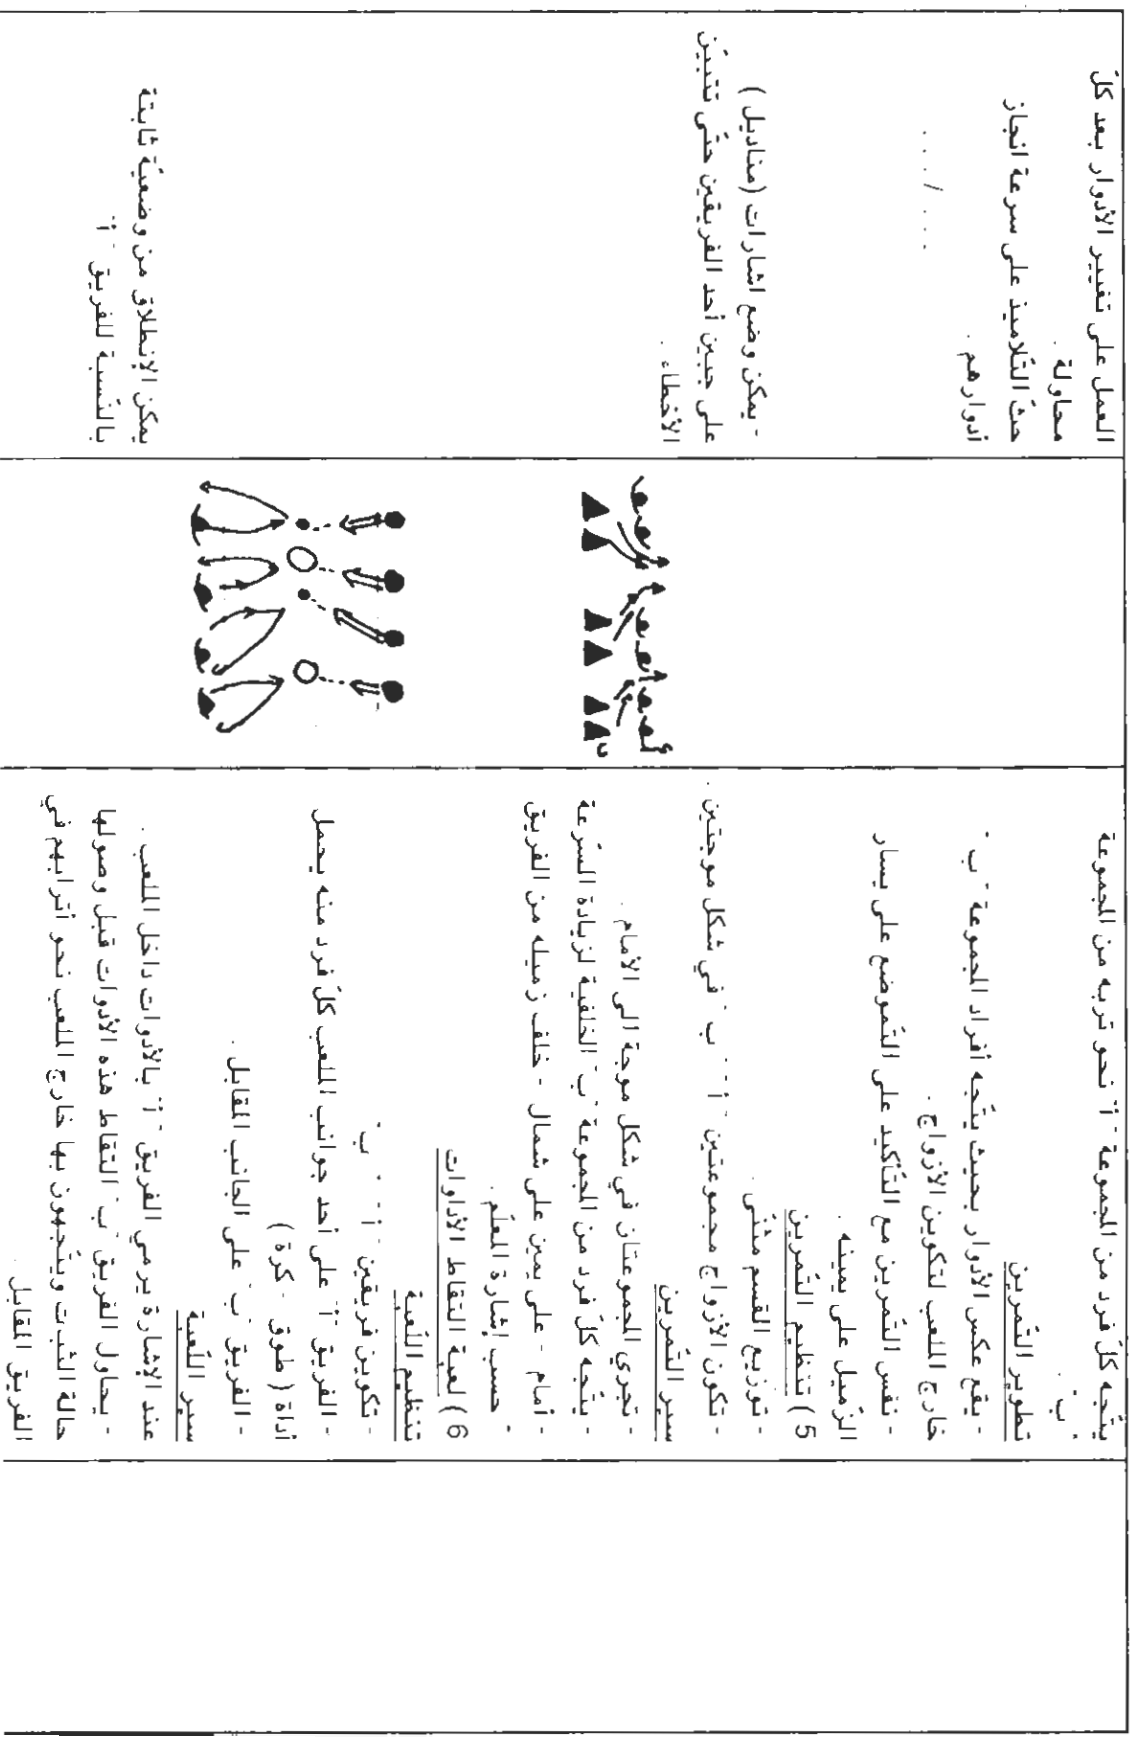 يتّجه كلّ فرد من المجموعة "أ" نحو تربه من المجموعة
"ب".
تطوير التّمرين
- يقع عكس الأدوار بحيث يتّجه أفراد المجموعة "ب"
خارج الملعب لتكوين الأزواج.
- نفس التّمرين مع التّأكيد على التّموضع على يسار
الزّميل على يمينه.
5) تنظيم التّمرين
- توزيع القسم مثنى.
- تكون الأزواج مجموعتين "أ" - "ب" في شكل موجتين.
سير التّمرين
- تجري المجموعتان في شكل موجة الى الأمام.
- يتّجه كلّ فرد من المجموعة "ب" الخلفية لزيادة السّرعة
- أمام - على يمين على شمال - خلف زميله من الفريق
- حسب إشارة المعلّم.
6) لعبة التقاط الأداوات
تنظيم اللّعبة
- تكوين فريقين "أ" - "ب"
- الفريق "أ" على أحد جوانب الملعب كلّ فرد منه يحمل
أداة ( طوق - كرة )
- الفريق "ب" على الجانب المقابل.
سير اللّعبة
عند الإشارة يرمي الفريق "أ" بالأدوات داخل الملعب.
- يحاول الفريق "ب" التقاط هذه الأدوات قبل وصولها
حالة الثبات ويتّجهون بها خارج الملعب نحو أترابهم في
الفريق المقابل.
أ
ب
العمل على تغيير الأدوار بعد كلّ
محاولة.
حثّ التّلاميذ على سرعة انجاز
أدوارهم.
.../...
- يمكن وضع اشارات (مناديل)
على جبين أحد الفريقين حتّى تتبيّن
الأخطاء.
يمكن الإنطلاق من وضعيّة ثابتة
بالنّسبة للفريق "أ"